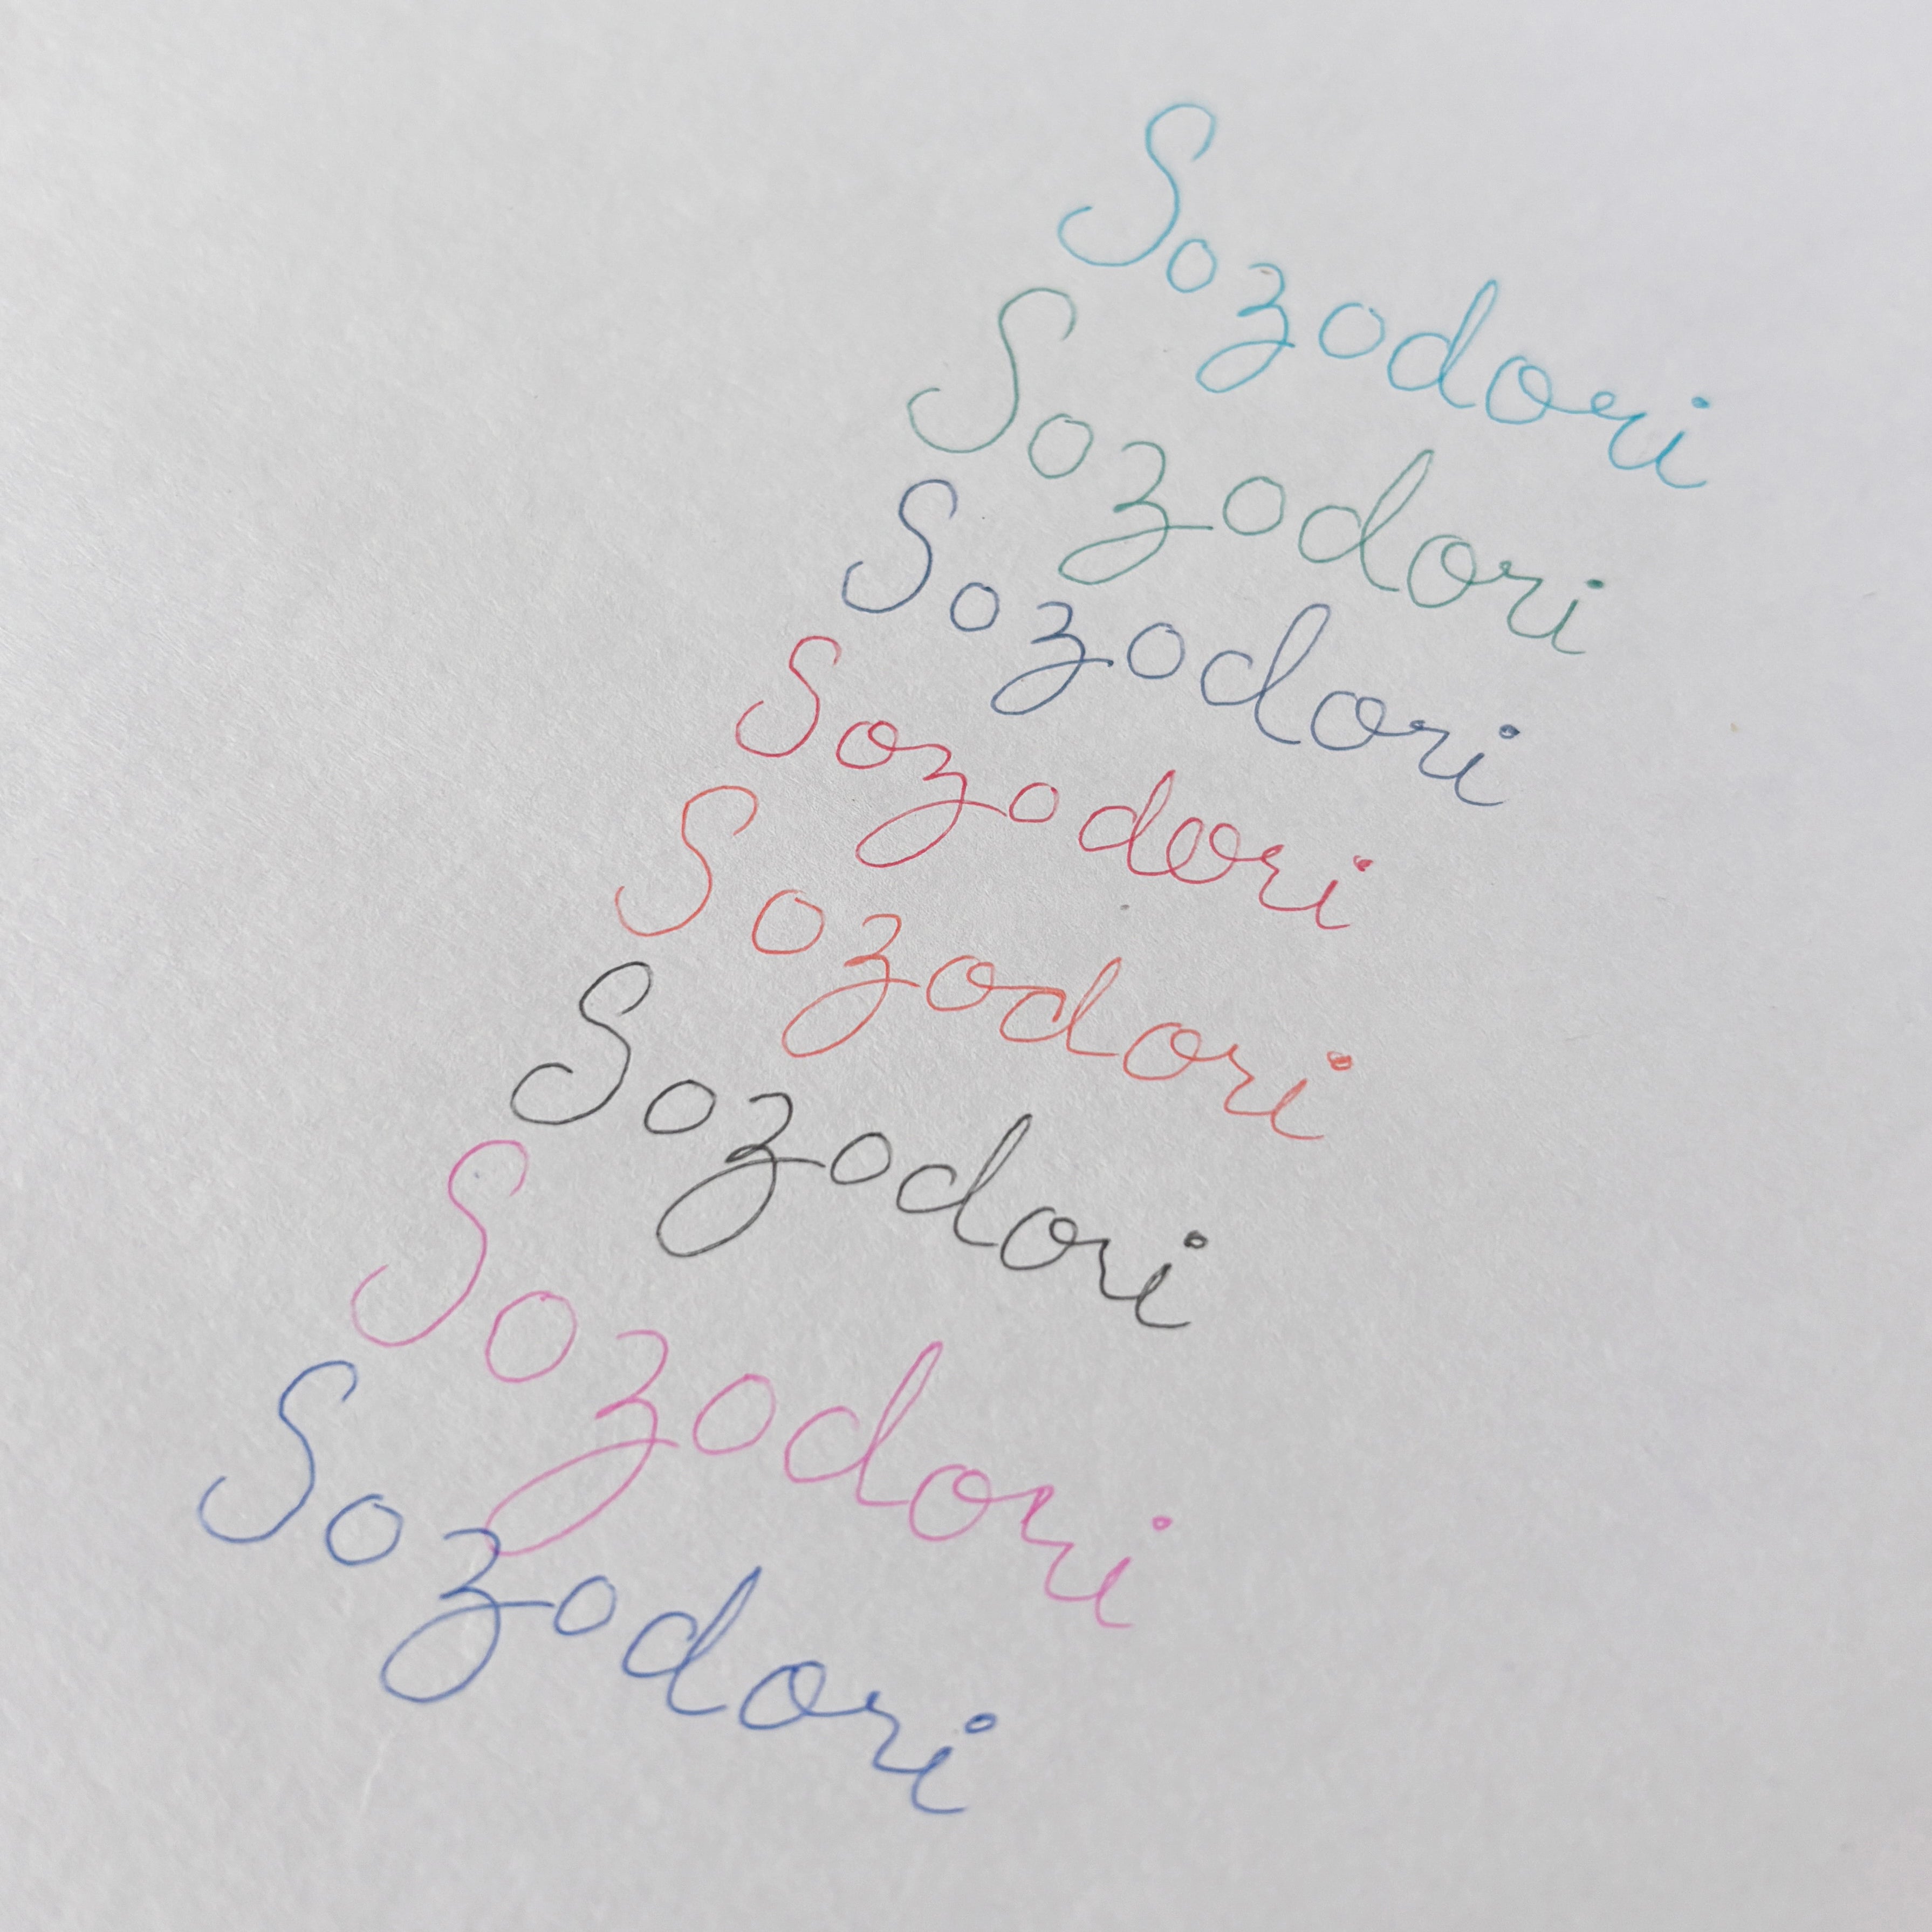 Sozodori
Sozodori
Sozodori
Sozodori
Sozodori
Sozodori
Sozodori
Sozodori